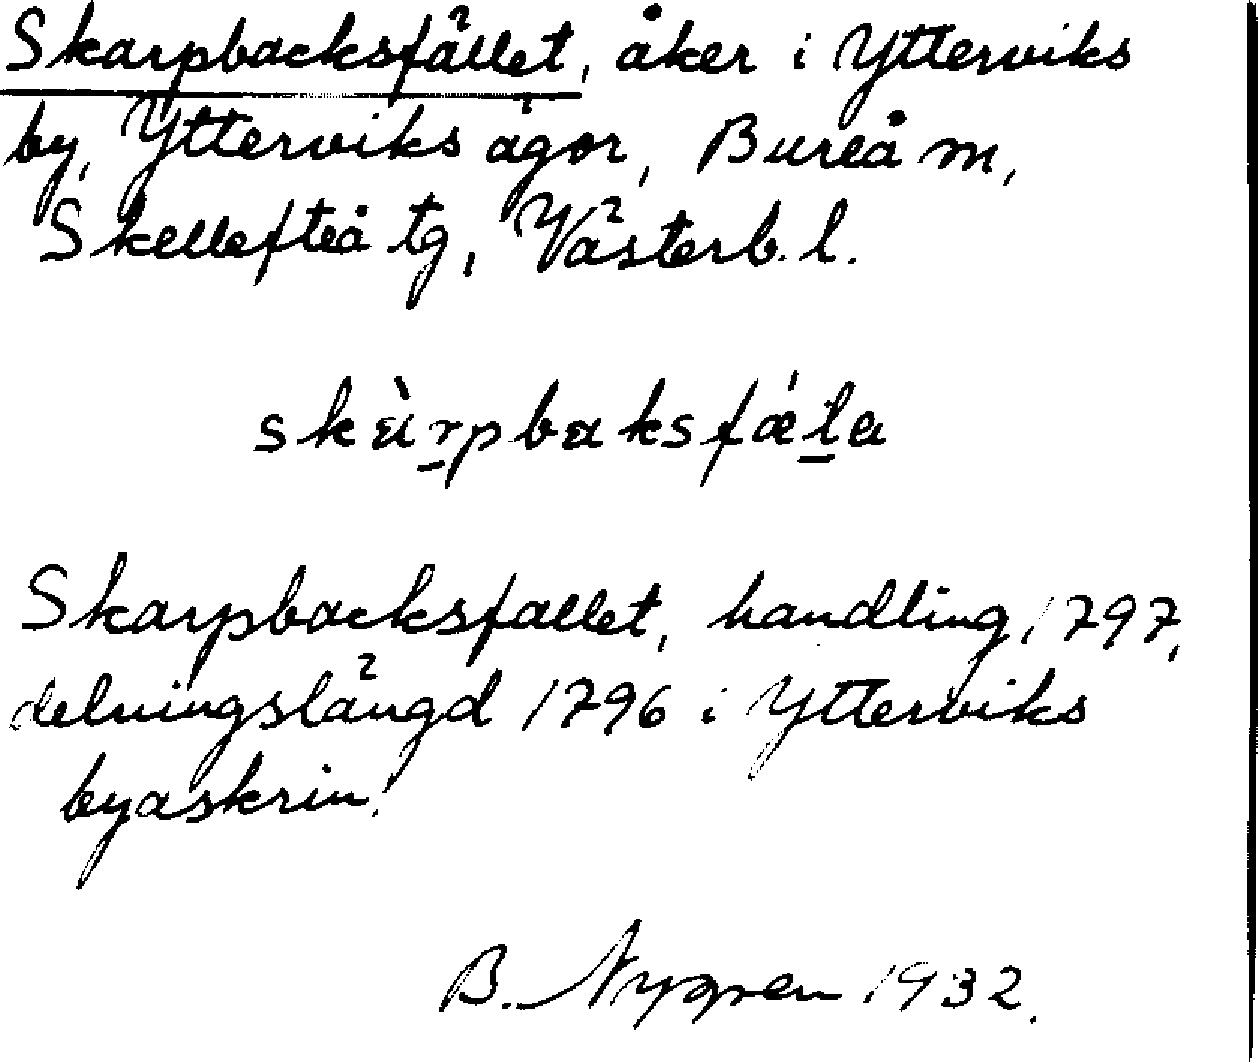 Skarpbacksfället, åker i Ytterviks
by, Ytterviks ägor, Bureå m,
Skellefteå tg, Västerb. l.
skàrpbaksfǽla
Skarpbacksfallet, handling, 1797,
delningslängd 1796 i Ytterviks
byaskrin.
B. Nygren 1932.